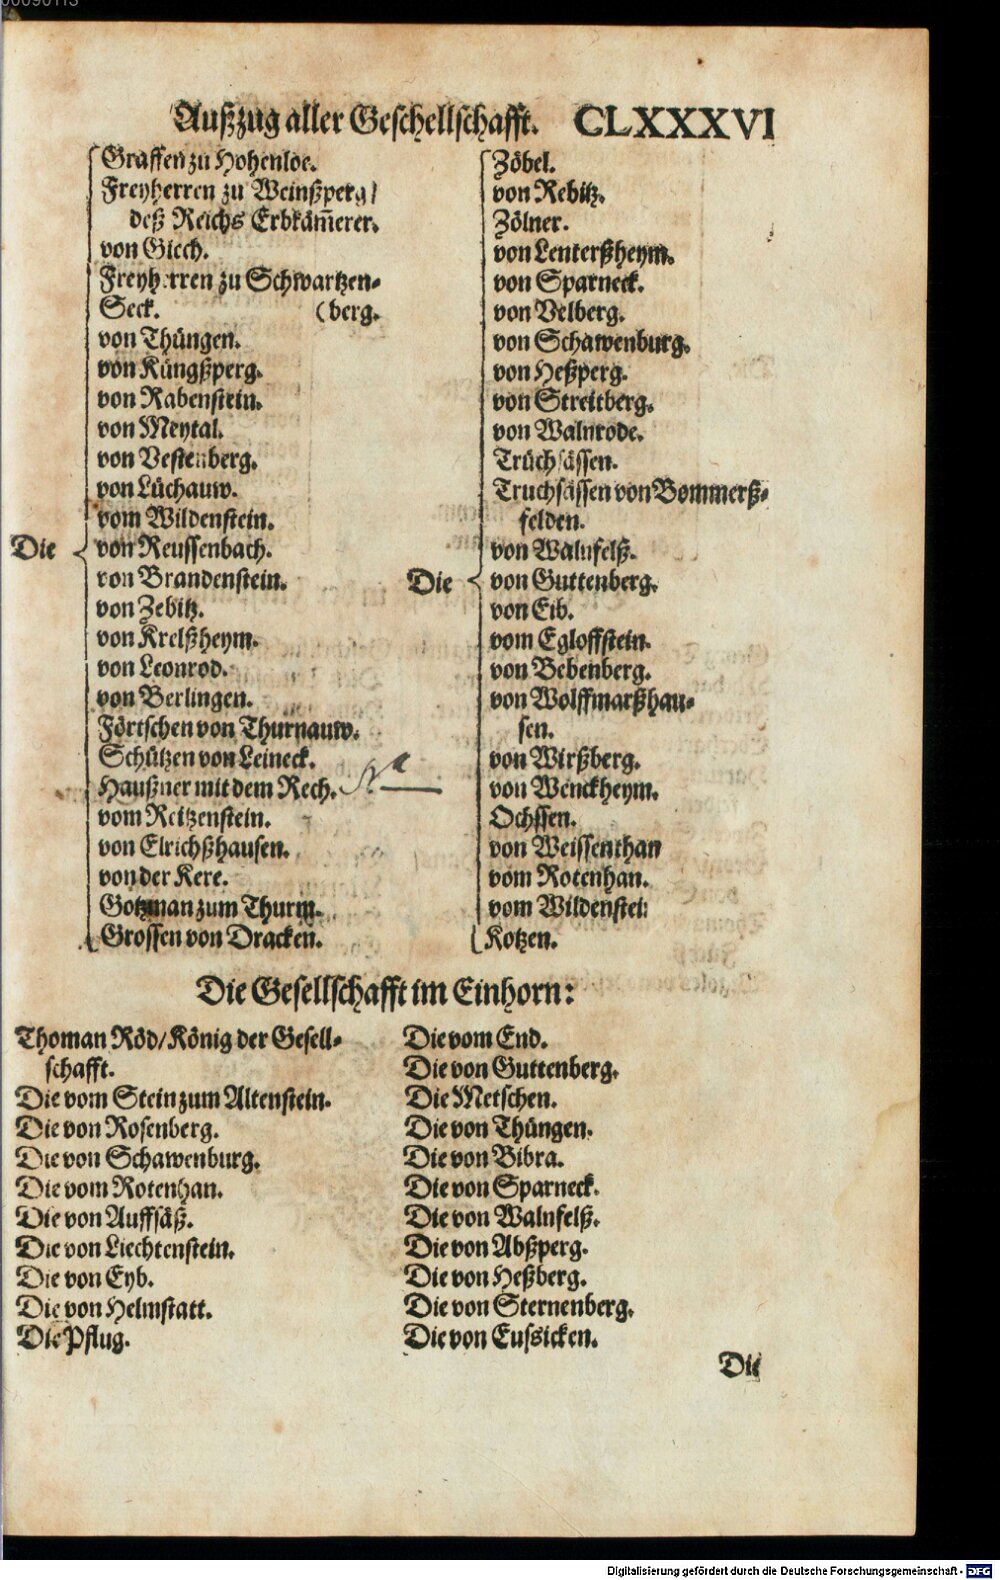 Außzug aller Geschellschafft. CLXXXVI
Graffen zu Hohenloe.
Freyherren zu Weinßperg/
deß Reichs Erbkam̄erer.
von Giech.
Freyherren zu Schwartzen-
Seck. (berg.
von Thüngen.
von Küngßperg.
von Rabenstein.
von Meytal.
von Vestenberg.
von Lüchauw.
vom Wildenstein.
Die von Reussenbach.
von Brandenstein.
von Zebitz.
von Krelßheym.
von Leonrod.
von Berlingen.
Förtschen von Thurnauw.
Schützen von Leineck.
Haußner mit dem Rech.
vom Reitzenstein.
von Elrichßhausen.
von der Kere.
Gotzman zum Thurm.
Grossen von Dracken.
Zöbel.
von Rebitz.
Zölner.
von Lenterßheym.
von Sparneck.
von Velberg.
von Schawenburg.
von Heßperg.
von Streitberg.
von Walnrode.
Trüchsässen.
Truchsässen von Bommerß-
felden.
von Walnfelß.
Die von Guttenberg.
von Eib.
vom Egloffstein.
von Bebenberg.
von Wolffmarßhau-
sen.
von Wirßberg.
von Wenckheym.
Ochssen.
von Weissenthan
vom Rotenhan.
vom Wildenstein
Kotzen.
Die Gesellschafft im Einhorn:
Thoman Röd/König der Gesell-
schafft.
Die vom Stein zum Altenstein.
Die von Rosenberg.
Die von Schawenburg.
Die vom Rotenhan.
Die von Auffsäß.
Die von Liechtenstein.
Die von Eyb.
Die von Helmstatt.
Die Pflug.
Die vom End.
Die von Guttenberg.
Die Metschen.
Die von Thüngen.
Die von Bibra.
Die von Sparneck.
Die von Walnfelß.
Die von Abßperg.
Die von Heßberg.
Die von Sternenberg.
Die von Eussicken.
Die
Digitalisierung gefördert durch die Deutsche Forschungsgemeinschaft - DFG